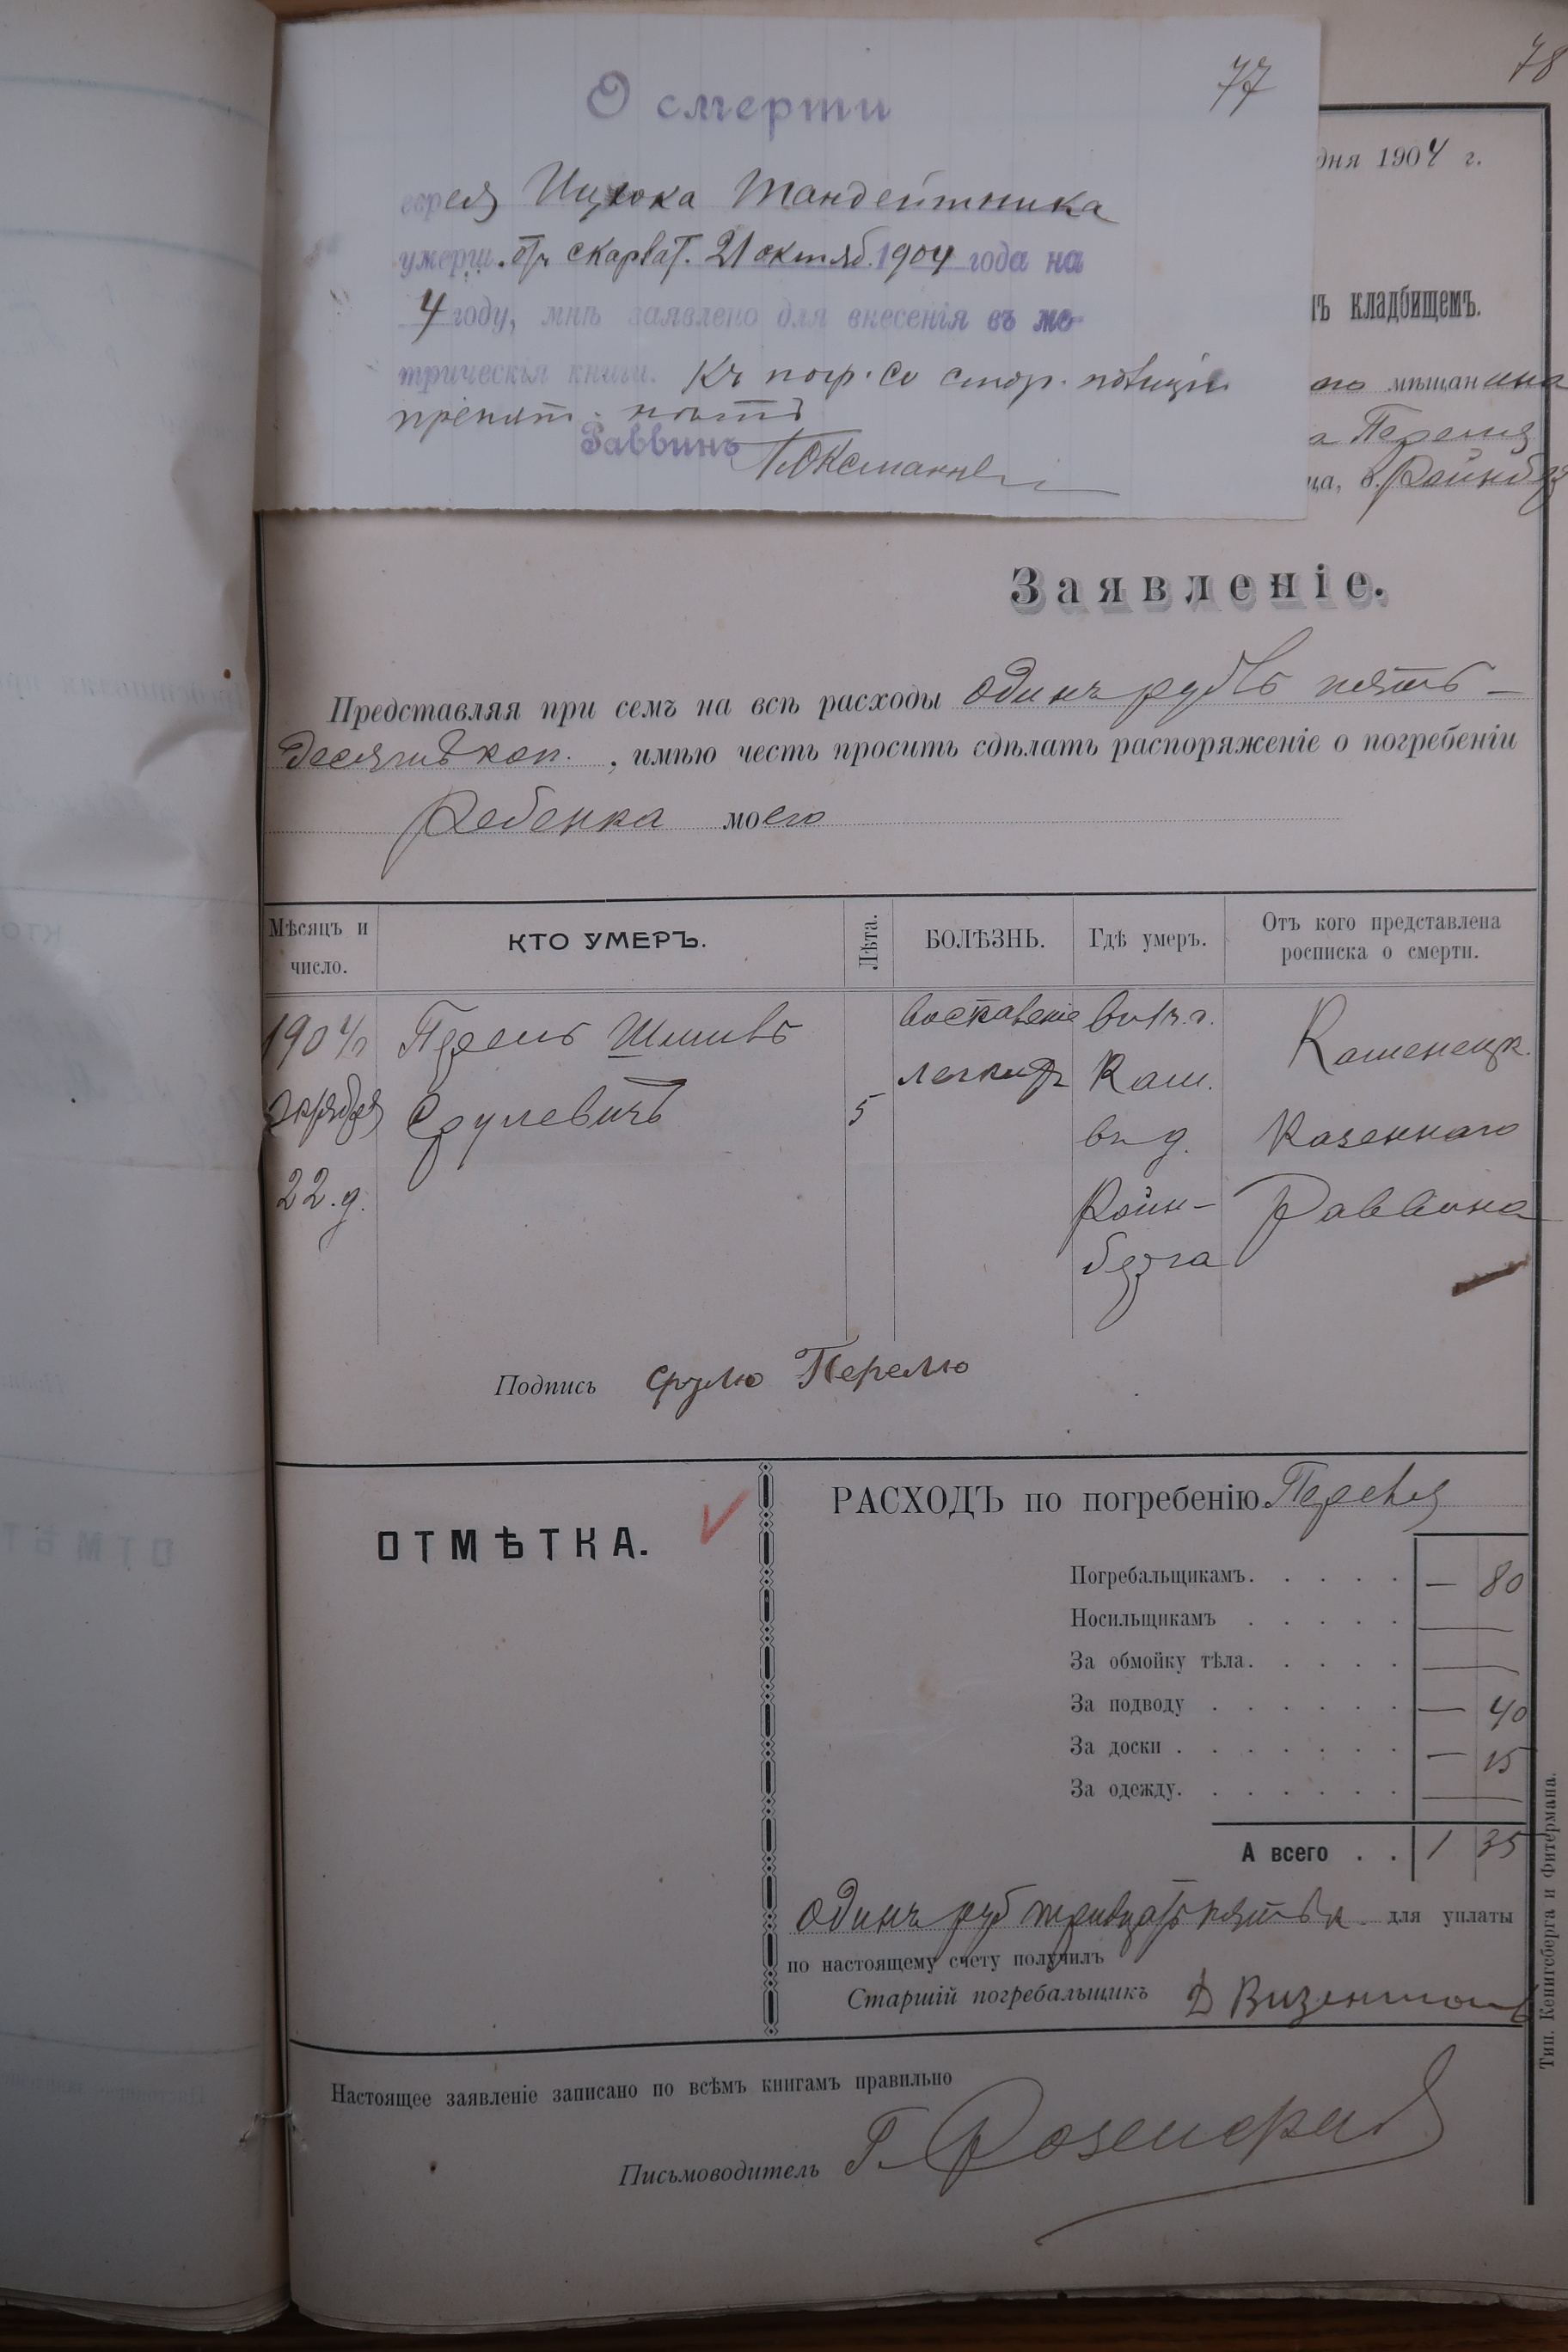 77
78
О смерти
еврея Ицхока Тандейтника
умерш. отъ скарлат. 21 октяб. 1904 года на
4 году, мнѣ заявлено для внесенія въ ме-
трическія книги. Къ погр. со стор. полиціи
препят. нѣтъ
Раввинъ
дня 1904 г.
ъ кладбищемъ.
ого мѣщанина
а Переля
ца, д. Ройнбер
Заявленіе.
Представляя при семъ на всѣ расходы одинъ рубль пять-
десятъ коп. , имѣю честь просить сдѣлать распоряженіе о погребеніи
Ребенка моего
Мѣсяцъ и число.
КТО УМЕРЪ.
Лѣта.
БОЛѢЗНЬ.
Гдѣ умеръ.
Отъ кого представлена росписка о смерти.
1904 г
октября
22. д.
Перель Шмиль
Срулевичъ
5
воспаленіе
легкихъ
въ г.
Кам.
въ д.
Ройн-
берга
Каменецк.
Казеннаго
Раввина
Подпись Срулю Перелю
ОТМѢТКА.
РАСХОДЪ по погребенію Переля
Погребальщикамъ. . . . . — 80
Носильщикамъ . . . . . —
За обмойку тѣла. . . . . —
За подводу . . . . . . — 40
За доски . . . . . . . — 15
За одежду. . . . . . . —
А всего . . 1 35
одинъ руб тридцать пять к. для уплаты
по настоящему счету получилъ
Старшій погребальщикъ Д Визенталь
Настоящее заявленіе записано по всѣмъ книгамъ правильно
Письмоводитель Г.
Тип. Кенигсберга и Фитермана.